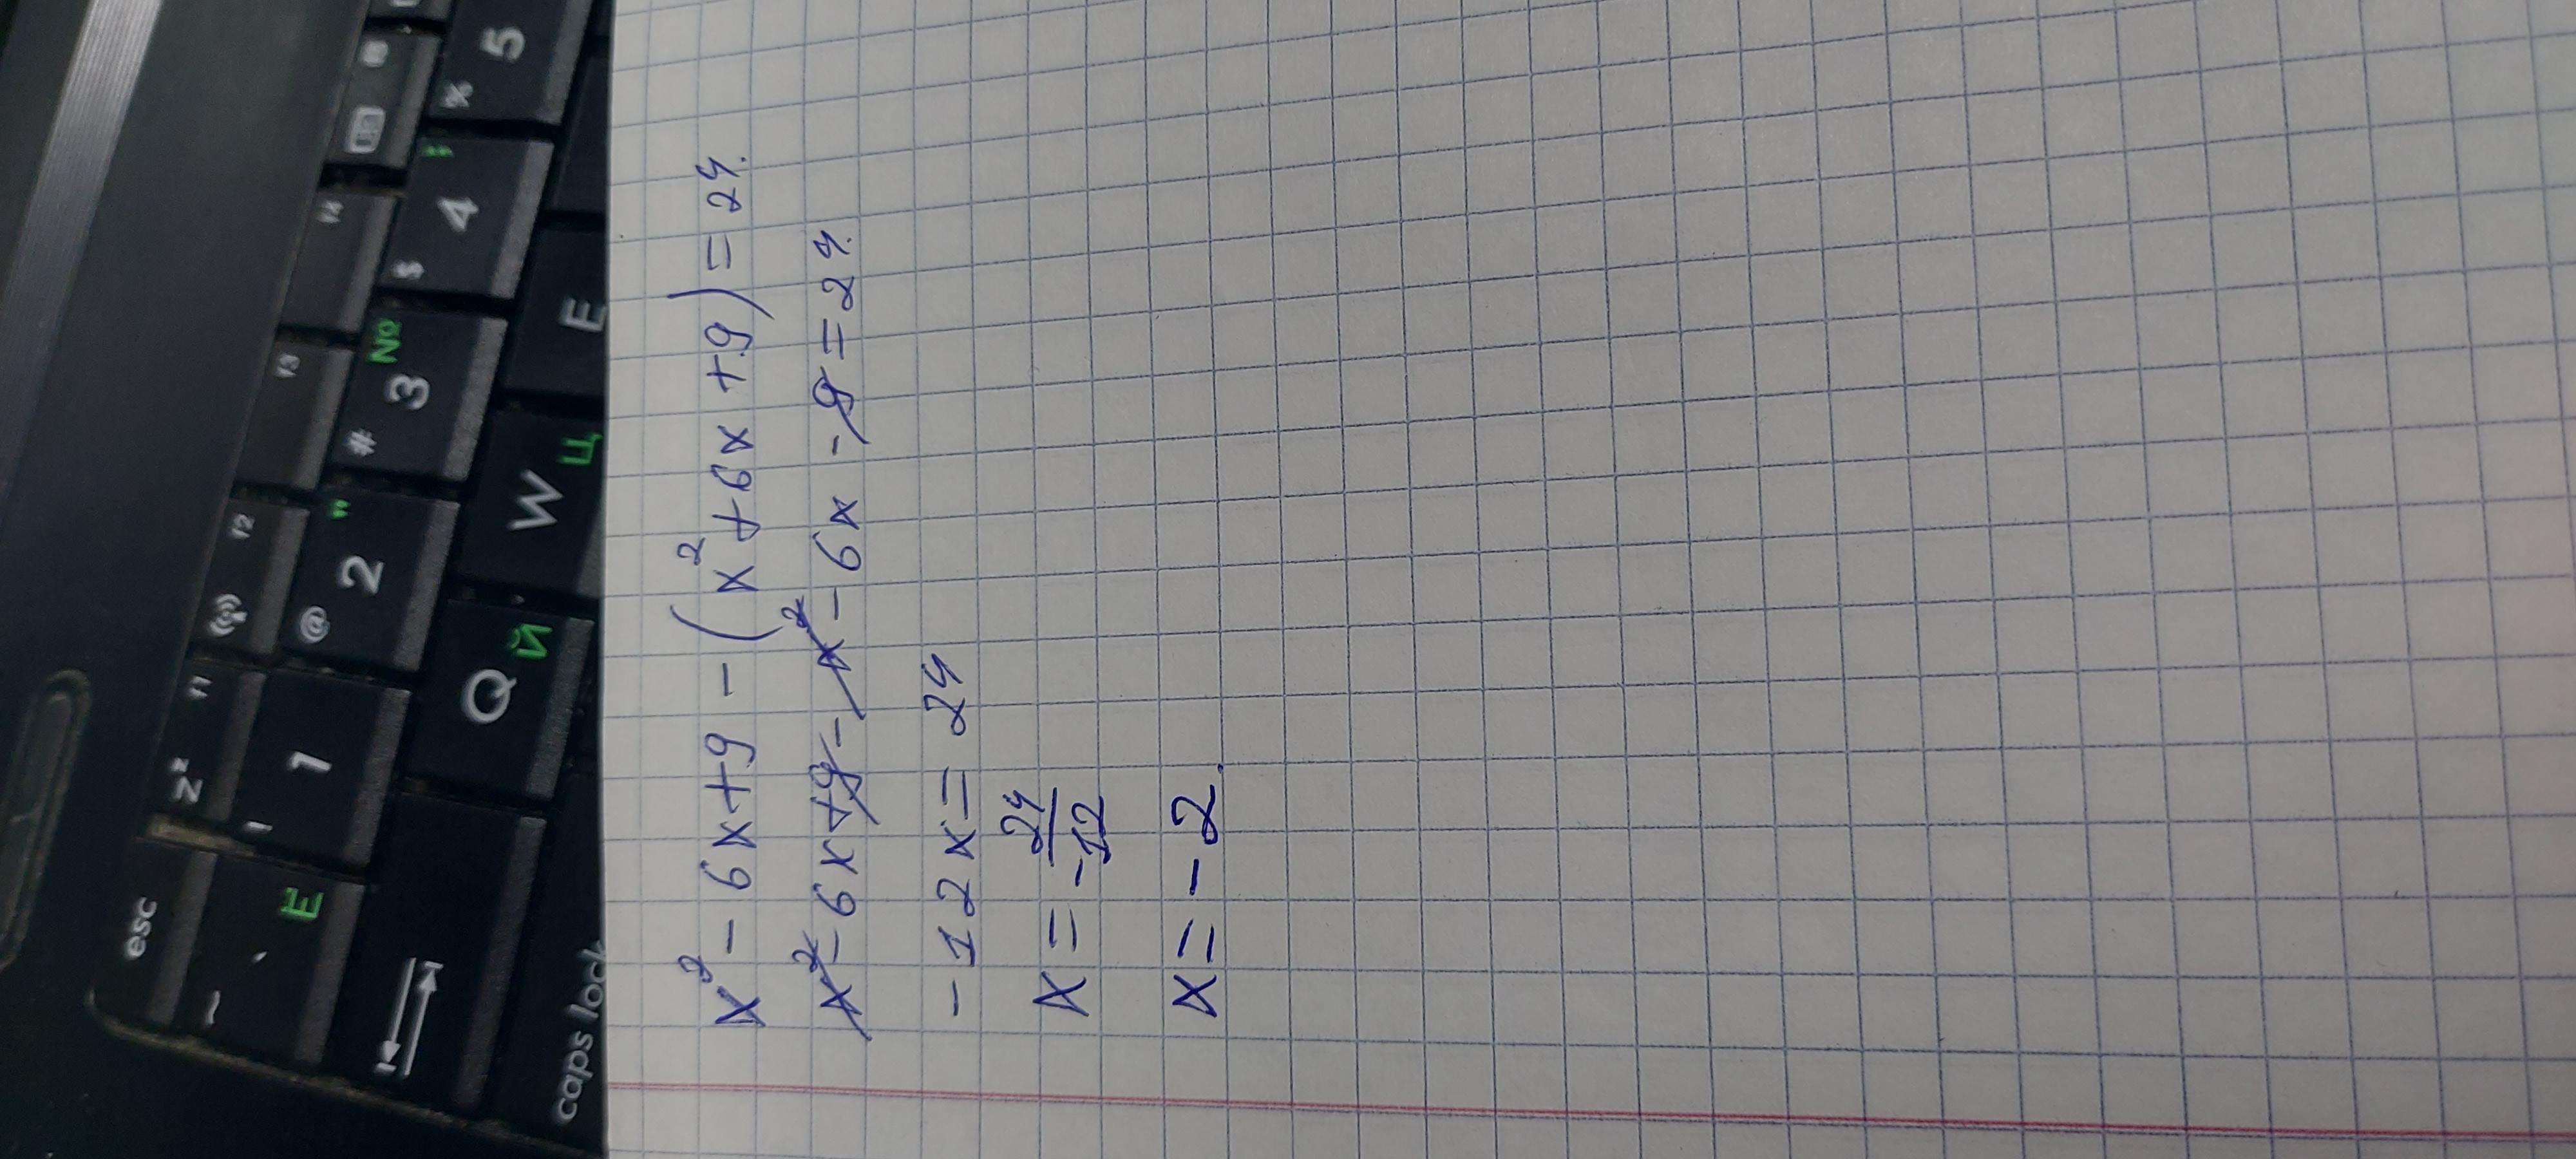 x² - 6x + 9 - (x² + 6x + 9) = 24.
x² - 6x + 9 - x² - 6x - 9 = 24.
-12x = 24
x = 24/-12
x = -2.
esc
z²
f1
f2
f3
f4
~ ` Ё
! 1
@ 2 "
# 3 №
$ 4 ;
% 5
Q Й
W Ц
E
caps lock